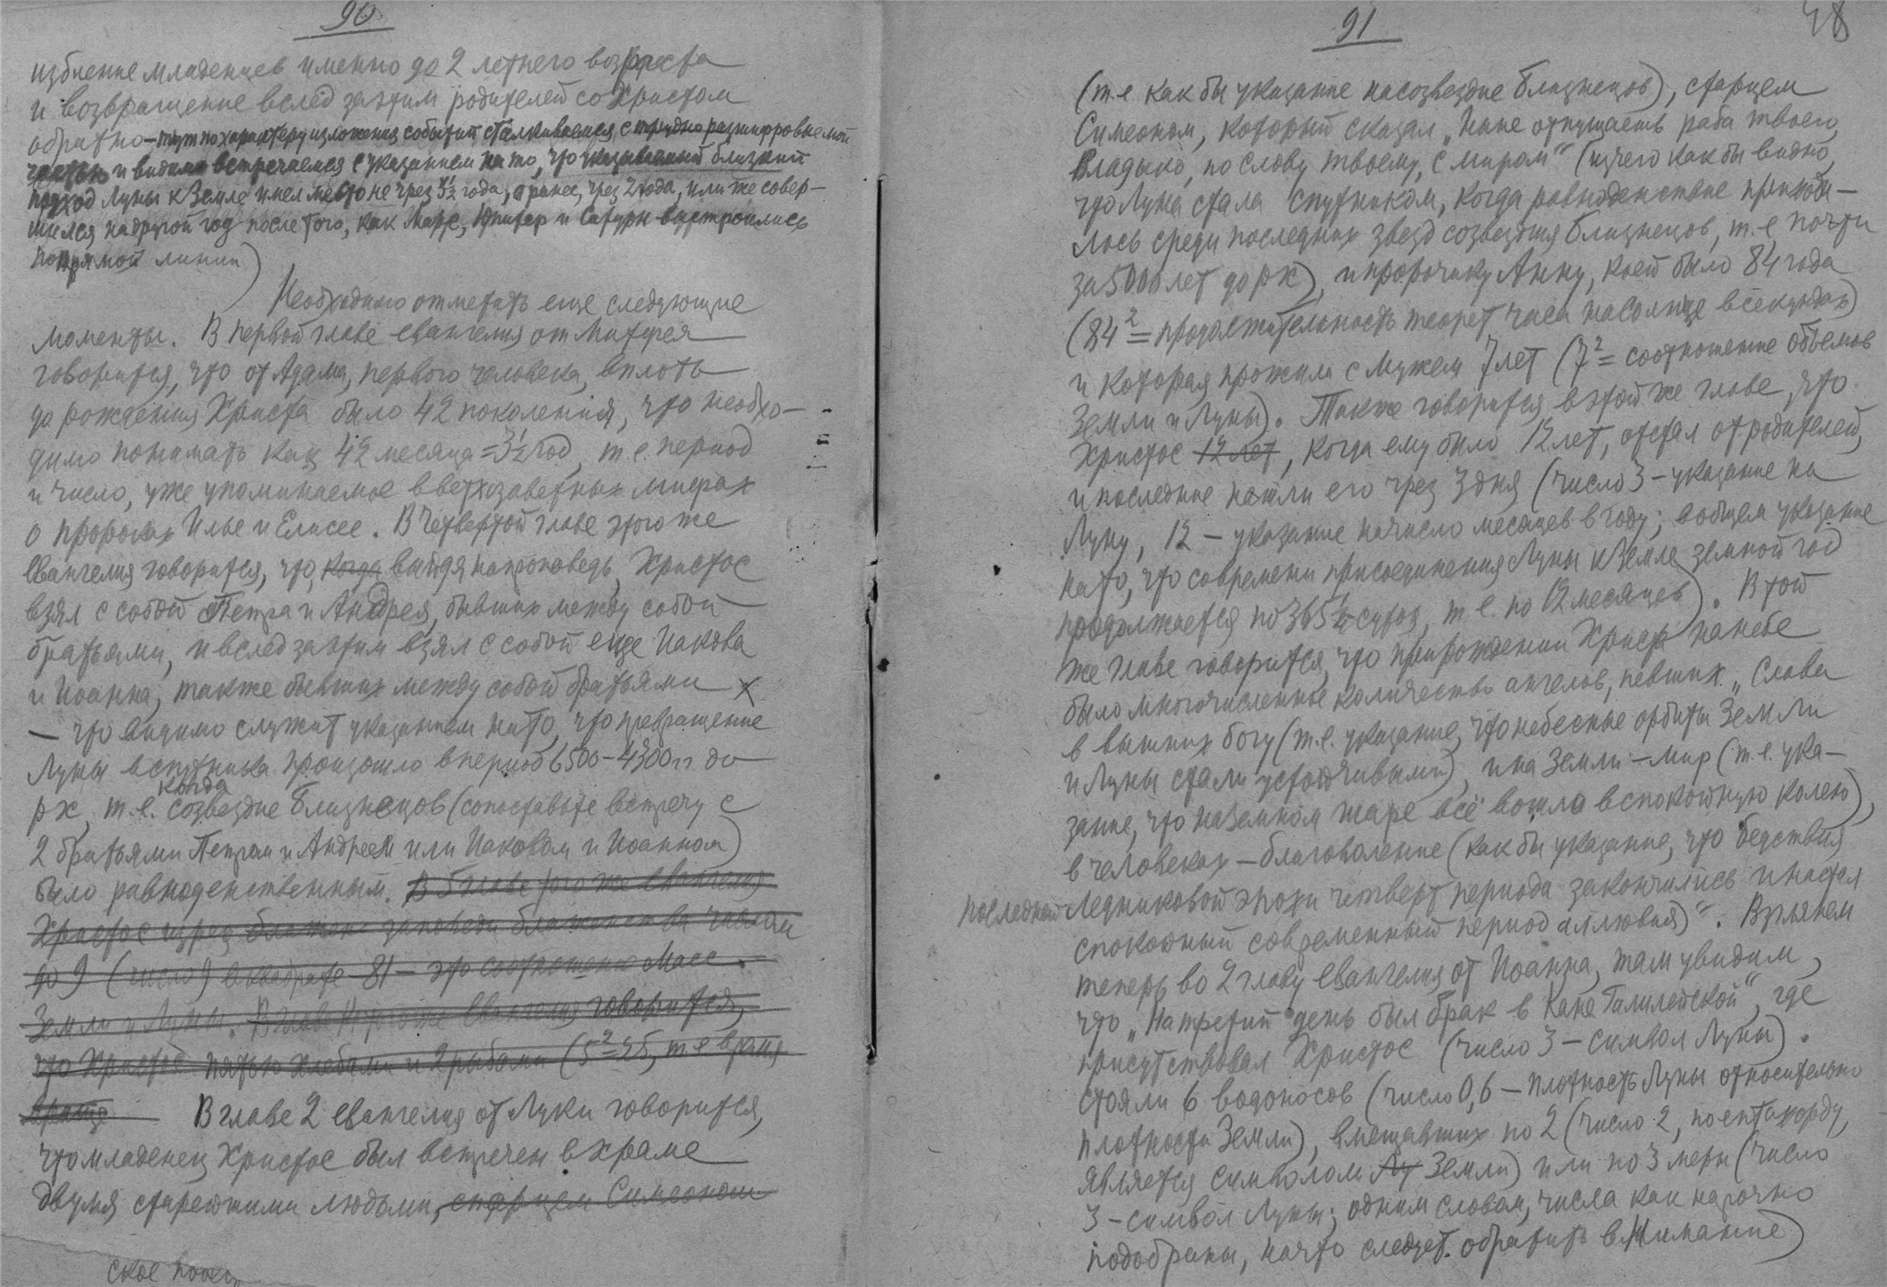 90
избиение младенцев именно до 2 летнего возраста
и возвращение вслед за этим родителей со Христом
обратно – тут по характеру изложения событий сталкиваемся с трудно расшифровываемой
частью и видимо встречаемся с указанием на то, что указываемый близкий
подход Луны к Земле имел место не чрез 3½ года, а ранее, чрез 2 года, или же совер-
шился на другой год после того, как Марс, Юпитер и Сатурн выстроились
по прямой линии)
Необходимо отметить еще следующие
моменты. В первой главе евангелия от Матфея
говорится, что от Адама, первого человека, вплоть
до рождения Христа было 42 поколения, что необхо-
димо понимать как 42 месяца = 3½ год, т.е. период
и число, уже упоминаемое в ветхозаветных мифах
о пророках Илье и Елисее. В четвертой главе этого же
евангелия говорится, что когда выйдя на проповедь, Христос
взял с собой Петра и Андрея, бывших между собой
братьями, и вслед за этим взял с собой еще Иакова
и Иоанна, также бывших между собой братьями ×
– что видимо служит указанием на то, что превращение
Луны в спутника произошло в период 6500–4300 гг. до
рх, т.е. когда созвездие Близнецов (сопоставьте встречу с
2 братьями Петром и Андреем или Иаковом и Иоанном)
было равноденственным. В 5 главе этого же евангелия
Христос изрек заповеди блаженства числом
до 9 (число 9 в квадрате – 81 – это соотношение масс
Земли и Луны. В главе евангелия говорится,
что Христос пятью хлебами и рыбами (5²=25, т.е. время
В главе 2 евангелия от Луки говорится,
что младенец Христос был встречен в храме
двумя старейшими людьми, старцем Симеоном
ское
91
48
(т.е. как бы указание на созвездие Близнецов), старцем
Симеоном, который сказал „Ныне отпущаешь раба твоего,
владыко, по слову твоему, с миром“ (из чего как бы видно,
что Луна стала спутником, когда равноденствие приходи-
лось среди последних звезд созвездия Близнецов, т.е. почти
за 5000 лет до рх), и пророчицу Анну, коей было 84 года
(84² = продолжительность теорет. часа на Солнце в секундах)
и которая прожила с мужем 7 лет (7² = соотношение объемов
Земли и Луны). Также говорится в этой же главе, что
Христос 12 лет, когда ему было 12 лет, отстал от родителей,
и последние нашли его чрез 3 дня (число 3 – указание на
Луну, 12 – указание на число месяцев в году; в общем указание
на то, что со времени присоединения Луны к Земле земной год
продолжается по 365¼ суток, т.е. по 12 месяцев). В той
же главе говорится, что при рождении Христа на небе
было многочисленное количество ангелов, певших „Слава
в вышних богу (т.е. указание, что небесные орбиты Земли
и Луны стали устойчивыми), и на Земли – мир (т.е. ука-
зание, что на земном шаре всё вошло в спокойную колею),
в человеках – благоволение (как бы указание, что бедствия
последней Ледниковой эпохи четверт. периода закончились и настал
спокойный современный период аллювия)“. Взглянем
теперь во 2 главу евангелия от Иоанна, там увидим,
что „На третий день был брак в Кане Галилейской“, где
присутствовал Христос (число 3 – символ Луны).
Стояли 6 водоносов (число 0,6 – плотность Луны относительно
плотности Земли), вмещавших по 2 (число 2, по ентакорду,
является символом Лу Земли) или по 3 меры (число
3 – символ Луны; одним словом, числа как нарочно
подобраны, на что следует обратить внимание)